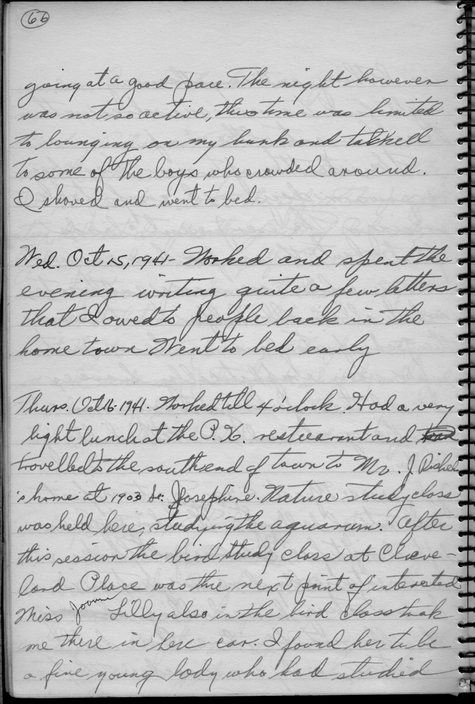 66
going at a good pace. The night however
was not so active, this time was limited
to lounging on my bunk and talked
to some of the boys who crowded around.
I shaved and went to bed.
Wed. Oct 15, 1941 - Worked and spent the
evening writing quite a few letters
that I owed to people back in the
home town Went to bed early
Thurs. Oct 16. 1941. Worked till 4 o'clock. Had a very
light lunch at the P.X. restaurant and
travelled to the south end of town to Mr. J.
's home at 1903 So. Josephine. Nature study class
was held here, studying the aquarium. After
this session the bird study class at Cleve-
land Place was the next point of interested
Miss Lilly also in the bird class took
me there in her car. I found her to be
a fine young lady who had studied